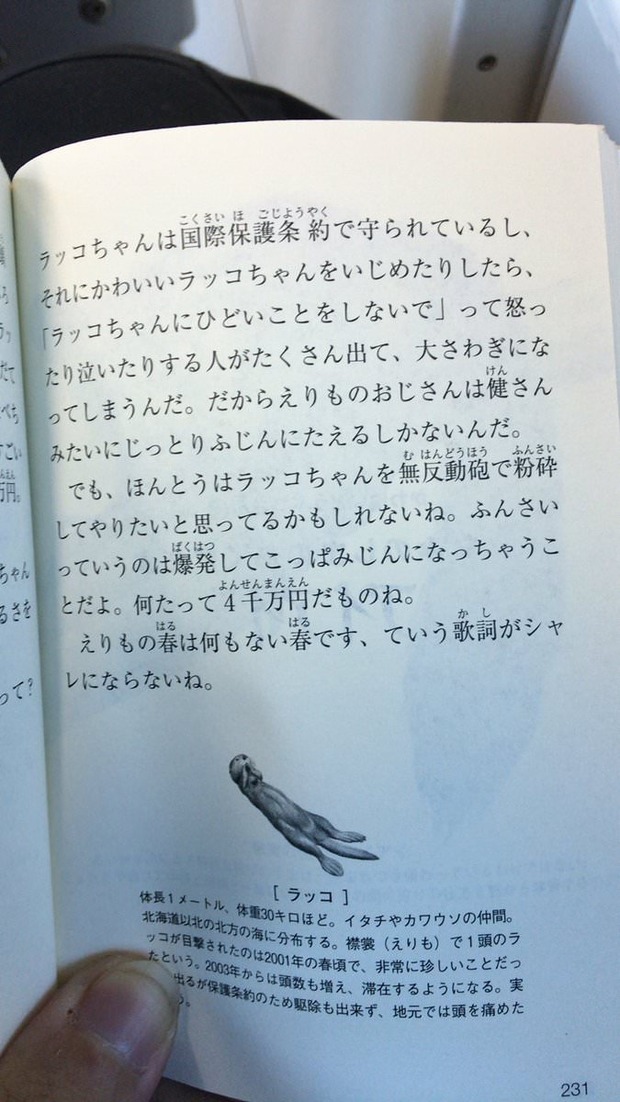 ラッコちゃんは国際保護条約で守られているし、
こくさい ほ ごじようやく
それにかわいいラッコちゃんをいじめたりしたら、
「ラッコちゃんにひどいことをしないで」って怒っ
たり泣いたりする人がたくさん出て、大さわぎにな
ってしまうんだ。だからえりものおじさんは健さん
けん
みたいにじっとりふじんにたえるしかないんだ。
でも、ほんとうはラッコちゃんを無反動砲で粉砕
む はんどうほう ふんさい
してやりたいと思ってるかもしれないね。ふんさい
っていうのは爆発してこっぱみじんになっちゃうこ
ばくはつ
とだよ。何たって4千万円だものね。
よんせんまんえん
えりもの春は何もない春です、ていう歌詞がシャ
はる はる か し
レにならないね。
[ ラッコ ]
体長1メートル、体重30キロほど。イタチやカワウソの仲間。
北海道以北の北方の海に分布する。襟裳(えりも)で1頭のラ
ッコが目撃されたのは2001年の春頃で、非常に珍しいことだっ
たという。2003年からは頭数も増え、滞在するようになる。実
出るが保護条約のため駆除も出来ず、地元では頭を痛めた
。
231